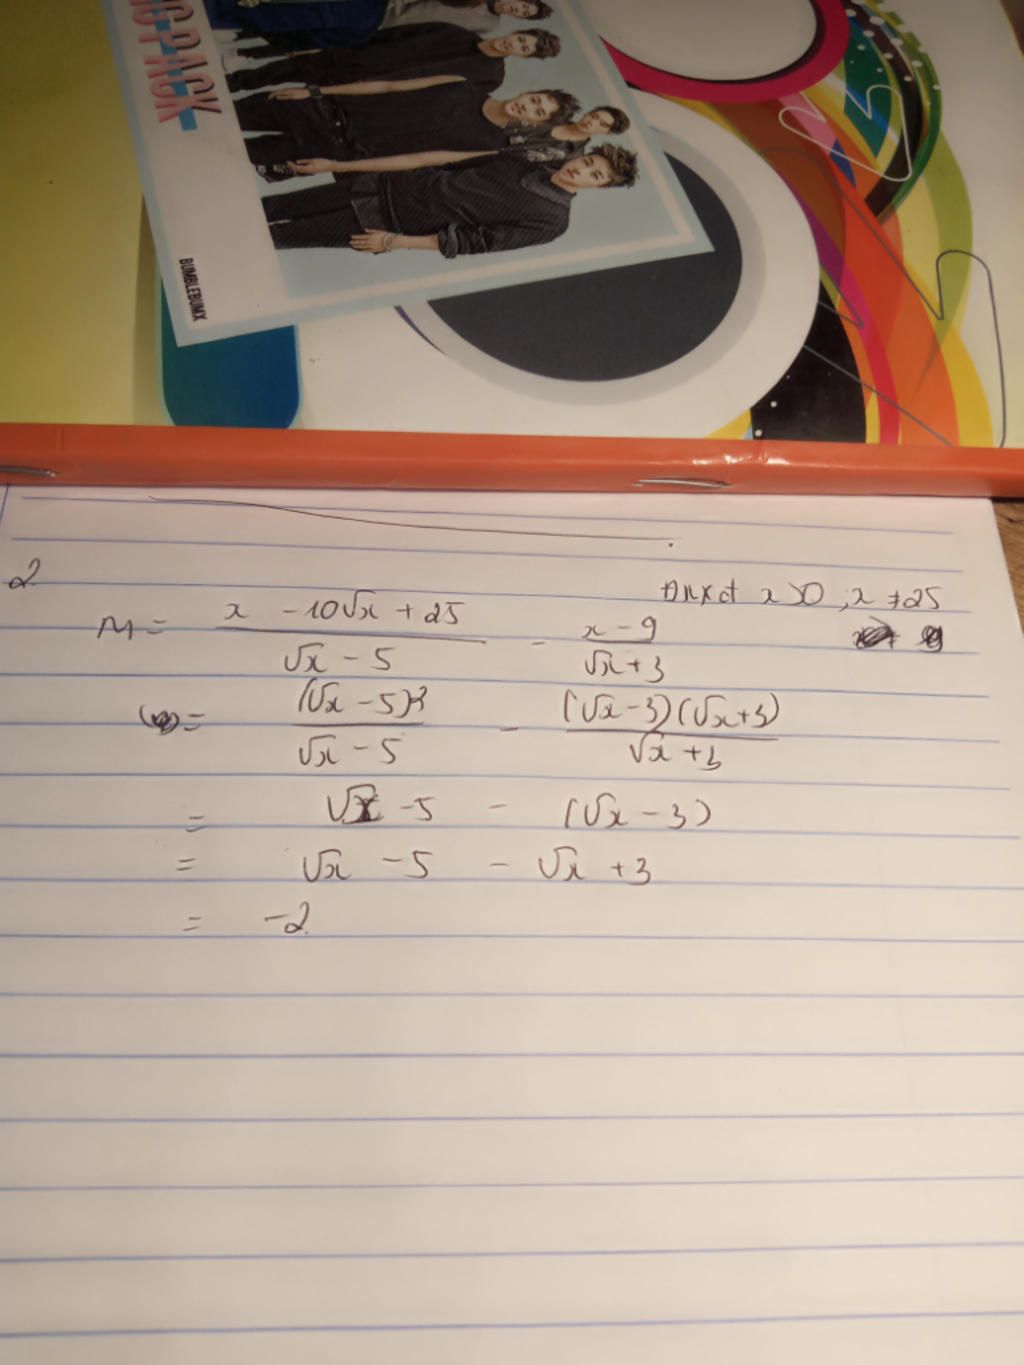 BIGPACK
BUMBLEBUMX
2
ĐKXĐ x > 0 ; x ≠ 25
M = (x - 10√x + 25)/(√x - 5) - (x - 9)/(√x + 3)
= (√x - 5)²/(√x - 5) - (√x - 3)(√x + 3)/(√x + 3)
= √x - 5 - (√x - 3)
= √x - 5 - √x + 3
= -2